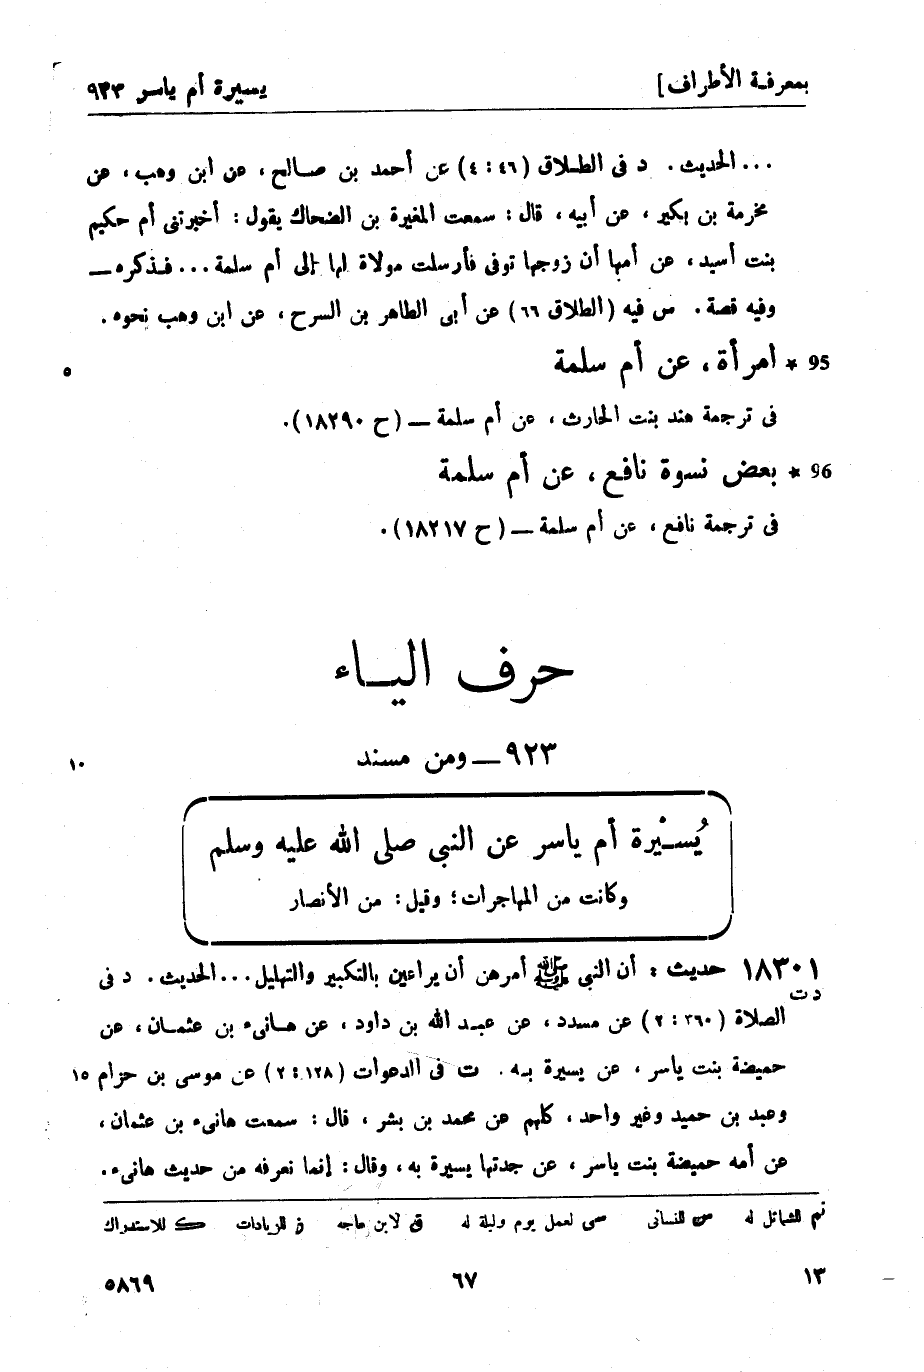 بمعرفة الأطراف] يسيرة أم ياسر ٩٢٣
... الحديث . د فى الطلاق (٤٦ : ٤) عن أحمد بن صالح ، عن ابن وهب ، عن
مخرمة بن بكير ، عن أبيه ، قال : سمعت المغيرة بن الضحاك يقول : أخبرتنى أم حكيم
بنت أسيد ، عن أمها أن زوجها توفى فأرسلت مولاة لها إلى أم سلمة ... فذكره ــ
وفيه قصة . س فيه (الطلاق ٦٦) عن أبى الطاهر بن السرح ، عن ابن وهب نحوه .
95 * امرأة ، عن أم سلمة ٥
فى ترجمة هند بنت الحارث ، عن أم سلمة ــ (ح ١٨٢٩٠).
96 * بعض نسوة نافع ، عن أم سلمة
فى ترجمة نافع ، عن أم سلمة ــ (ح ١٨٢١٧).
حرف الياء
٩٢٣ ــ ومن مسند ١٠
يُسَيْرة أم ياسر عن النبى صلى الله عليه وسلم
وكانت من المهاجرات ؛ وقيل : من الأنصار
١٨٣٠١ حديث : أن النبى ﷺ أمرهن أن يراعين بالتكبير والتهليل ... الحديث . د فى
د ت
الصلاة (٣٦٠ : ٢) عن مسدد ، عن عبد الله بن داود ، عن هانىء بن عثمان ، عن
حميضة بنت ياسر ، عن يسيرة به . ت فى الدعوات (١٢٨ : ٢) عن موسى بن حزام ١٥
وعبد بن حميد وغير واحد ، كلهم عن محمد بن بشر ، قال : سمعت هانىء بن عثمان ،
عن أمه حميضة بنت ياسر ، عن جدتها يسيرة به ، وقال : إنما نعرفه من حديث هانىء .
تم للشمائل له س للنسائى سى لعمل يوم وليلة له ق لابن ماجه ز للزيادات ك للاستدراك
١٣ ٦٧ ٥٨٦٩